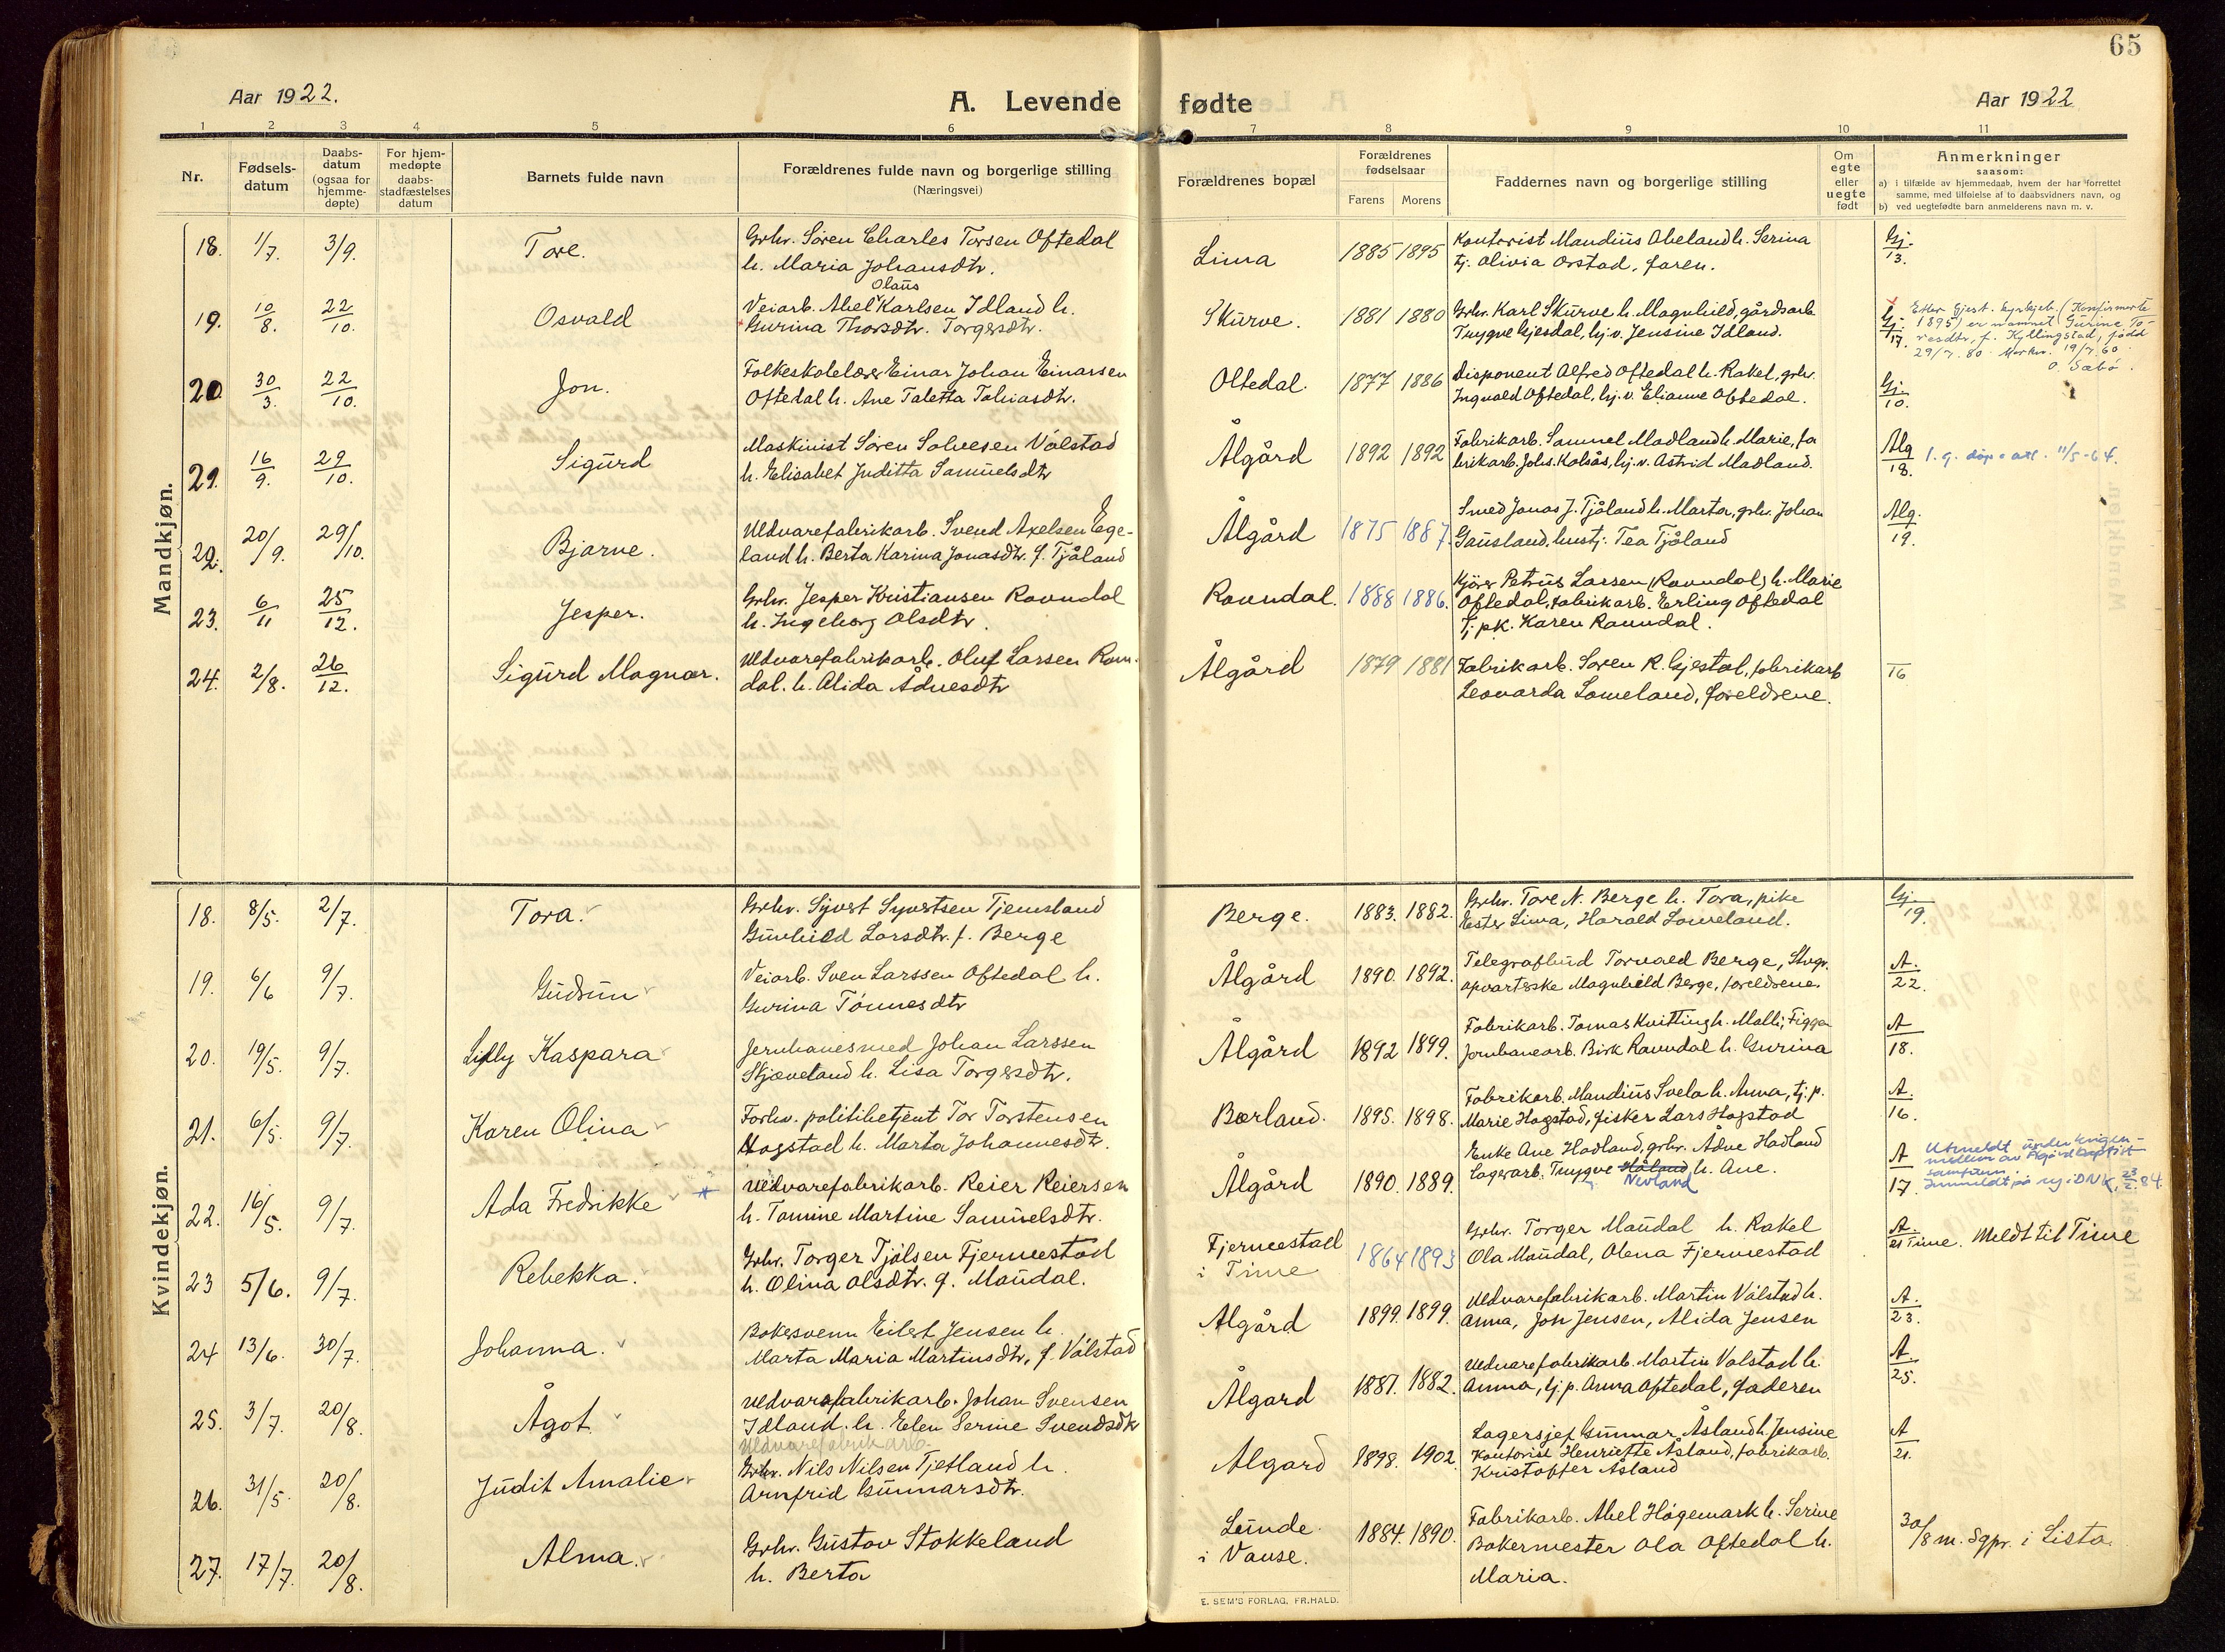 65
Aar 1922.
A. Levende fødte
Aar 1922
1 2 3 4 5 6 7 8 9 10 11
Nr.
Fødsels-
datum
Daabs-
datum
(ogsaa for
hjemme-
døpte)
For hjem-
medøpte
daabs-
stadfæstelses
datum
Barnets fulde navn
Forældrenes fulde navn og borgerlige stilling
(Næringsvei)
Forældrenes bopæl
Forældrenes
fødselsaar
Farens Morens
Faddernes navn og borgerlige stilling
Om
egte
eller
uegte
født
Anmerkninger
saasom:
a) i tilfælde av hjemmedaab, hvem der har forrettet
samme, med tilføielse af to daabsvidners navn, og
b) ved uegtefødte barn anmelderens navn m. v.
Mandkjøn.
18. 1/7. 3/9. Tore. Grbr. Søren Charles Torsen Oftedal
h. Maria Johansdtr.
Lima 1885 1895 Kontorist Mandius Abeland h. Serina
tj. Olivia Orstad, faren.
Gj. 13.
19. 10/8. 22/10. Osvald Veiarb. Abel Olaus Karlsen Idland h.
Gurina Thorsdtr. Torgersdtr.
Skurve. 1881 1880 Grbr. Karl Skurve h. Magnhild, gårdsarb.
Trygve Gjesdal, hj.v. Jensine Idland.
Gj. 17. Etter Gjest. kyrkjeb. (Konfirmerte
1895) er namnet Gurine To-
resdtr, f. Kyllingstad, født
29/7. 80. Merkn. 19/7.60
O. Sæbø.
20 30/3. 22/10. Jon. Folkeskolelærer Einar Johan Einarsen
Oftedal h. Ane Taletta Tobiasdtr.
Oltedal. 1877 1886 Disponent Alfred Oftedal h. Rakel, grbr.
Ingvald Oftedal, hj.v. Elianne Oftedal.
Gj. 10.
21. 16/9. 29/10. Sigurd Maskinist Søren Salvesen Vålstad
h. Elisabet Juditta Samuelsdtr
Ålgård 1892 1892 Fabrikarb. Samuel Madland h. Marie, fa
brikarb. Johs. Kolsås, hj.v. Astrid Madland.
Alg 18. 11/5-64.
22. 20/9. 29/10. Bjarne. Uldvarefabrikarb. Svend Axelsen Ege-
land h. Berta Karina Jonasdtr. f. Tjåland
Ålgård 1875 1887. Smed Jonas J. Tjåland h. Marta, grbr. Johan
Gausland, hustj. Tea Tjåland
Alg. 19.
23. 6/11 25/12. Jesper. Grbr. Jesper Kristiansen Ravndal
h. Ingeborg Olsdtr.
Ravndal. 1888 1886. Kjører Petrus Larsen (Ravndal) h. Marie
Oftedal, fabrikarb. Erling Oftedal
Tj. pk. Karen Ravndal.
24. 2/8. 26/12. Sigurd Magnar. Uldvarefabrikarb. Oluf Larsen Ravn-
dal. h. Alida Ådnesdtr
Ålgård 1879 1881 Fabrikarb. Søren R. Gjesdal, fabrikarb
Leonarda Lomeland, foreldrene.
16
Kvindekjøn.
18. 8/5. 2/7. Tora. Grbr. Syvert Syvertsen Tjemsland
Gunhild Larsdtr. f. Berge
Berge. 1883. 1882. Grbr. Tore N. Berge h. Tora, pike
Ester Lima, Harald Lomeland.
Gj. 19.
19. 6/6 9/7. Gudrun Veiarb. Sven Larssen Oftedal h.
Gurina Tönnesdtr
Ålgård 1890. 1892. Telegrafbud Torvald Berge, Skogr.
opvarterske Magnhild Berge, foreldrene.
A. 22.
20. 19/5. 9/7. Lilly Kaspara Jernbanesmed Johan Larssen
Skjæveland h. Lisa Torgersdtr.
Ålgård 1892 1899. Fabrikarb. Tomas Kvitting h. Malli, Figgen
Jernbanearb. Birk Ravndal h. Gurina
A 18.
21. 6/5. 9/7. Karen Olina Forhv. politibetjent Tor Torstensen
Hogstad h. Marta Johannesdtr.
Bærland. 1895. 1898. Fabrikarb. Mandius Svela h. Anna, tj. p.
Marie Hogstad, fisker Lars Hogstad
A. 16.
22. 16/5. 9/7. Ada Fredrikke Uldvarefabrikarb. Reier Reiersen
h. Tomine Martine Samuelsdtr.
Ålgård 1890. 1889. Enke Ane Hadland, grbr. Ådne Hadland
Lagerarb. Trygve Håland h. Ane.
Nevland
A 17. Utmeldt under krigen -
medlem av Ålgård baptist-
samfunn.
Innmeldt på ny i DNK, 23/2.84.
23 5/6. 9/7. Rebekka. Grbr. Torger Tjålsen Fjermestad
h. Olina Olsdtr. f. Maudal.
Fjermestad
i Time 1864 1893 Grbr. Torger Maudal h. Rakel
Ola Maudal, Olena Fjermestad
A. 21 Time. Meldt til Time
24 13/6. 30/7. Johanna. Bakersvenn Eilert Jensen h.
Marta Maria Martinsdtr, f. Vålstad
Ålgård 1899. 1899. Uldvarefabrikarb. Martin Vålstad h.
Anna, Joh Jensen, Alida Jensen
A. 23.
25. 3/7. 20/8. Ågot Uldvarefabrikarb. Johan Svensen
Idland. h. Elen Serine Svendsdtr
Ålgard 1881. 1882. Uldvarefabrikarb. Martin Valstad h.
Anna, tj. p. Anna Oftedal, faderen
A 25.
26. 31/5. 20/8. Judit Amalie Uldvarefabrikarb.
Grbr. Nils Nilsen Tjetland h.
Arnfrid Gunnarsdtr.
Algard 1898. 1902 Lagersjef Gunnar Åsland h. Jensine
Kontorist Henriette Åsland, fabrikarb.
Kristoffer Åsland
A 21.
27. 17/7. 20/8. Alma. Grbr. Gustav Stokkeland
h. Berta
Lunde
i Vanse. 1884. 1890. Fabrikarb. Abel Högemark h. Serine
Bakermester Ola Oftedal h.
Maria.
30/8 m. Sgpr. i Lista.
E. SEM'S FORLAG, FR.HALD.